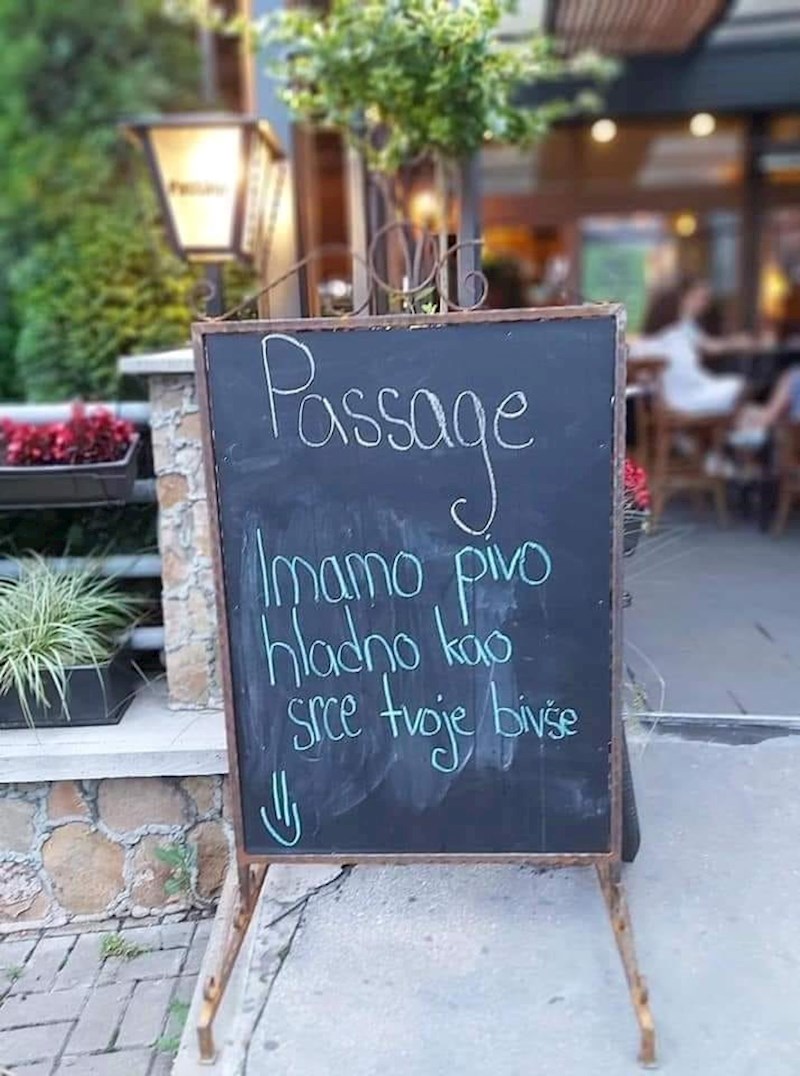 Passage
Imamo pivo
hladno kao
srce tvoje bivše